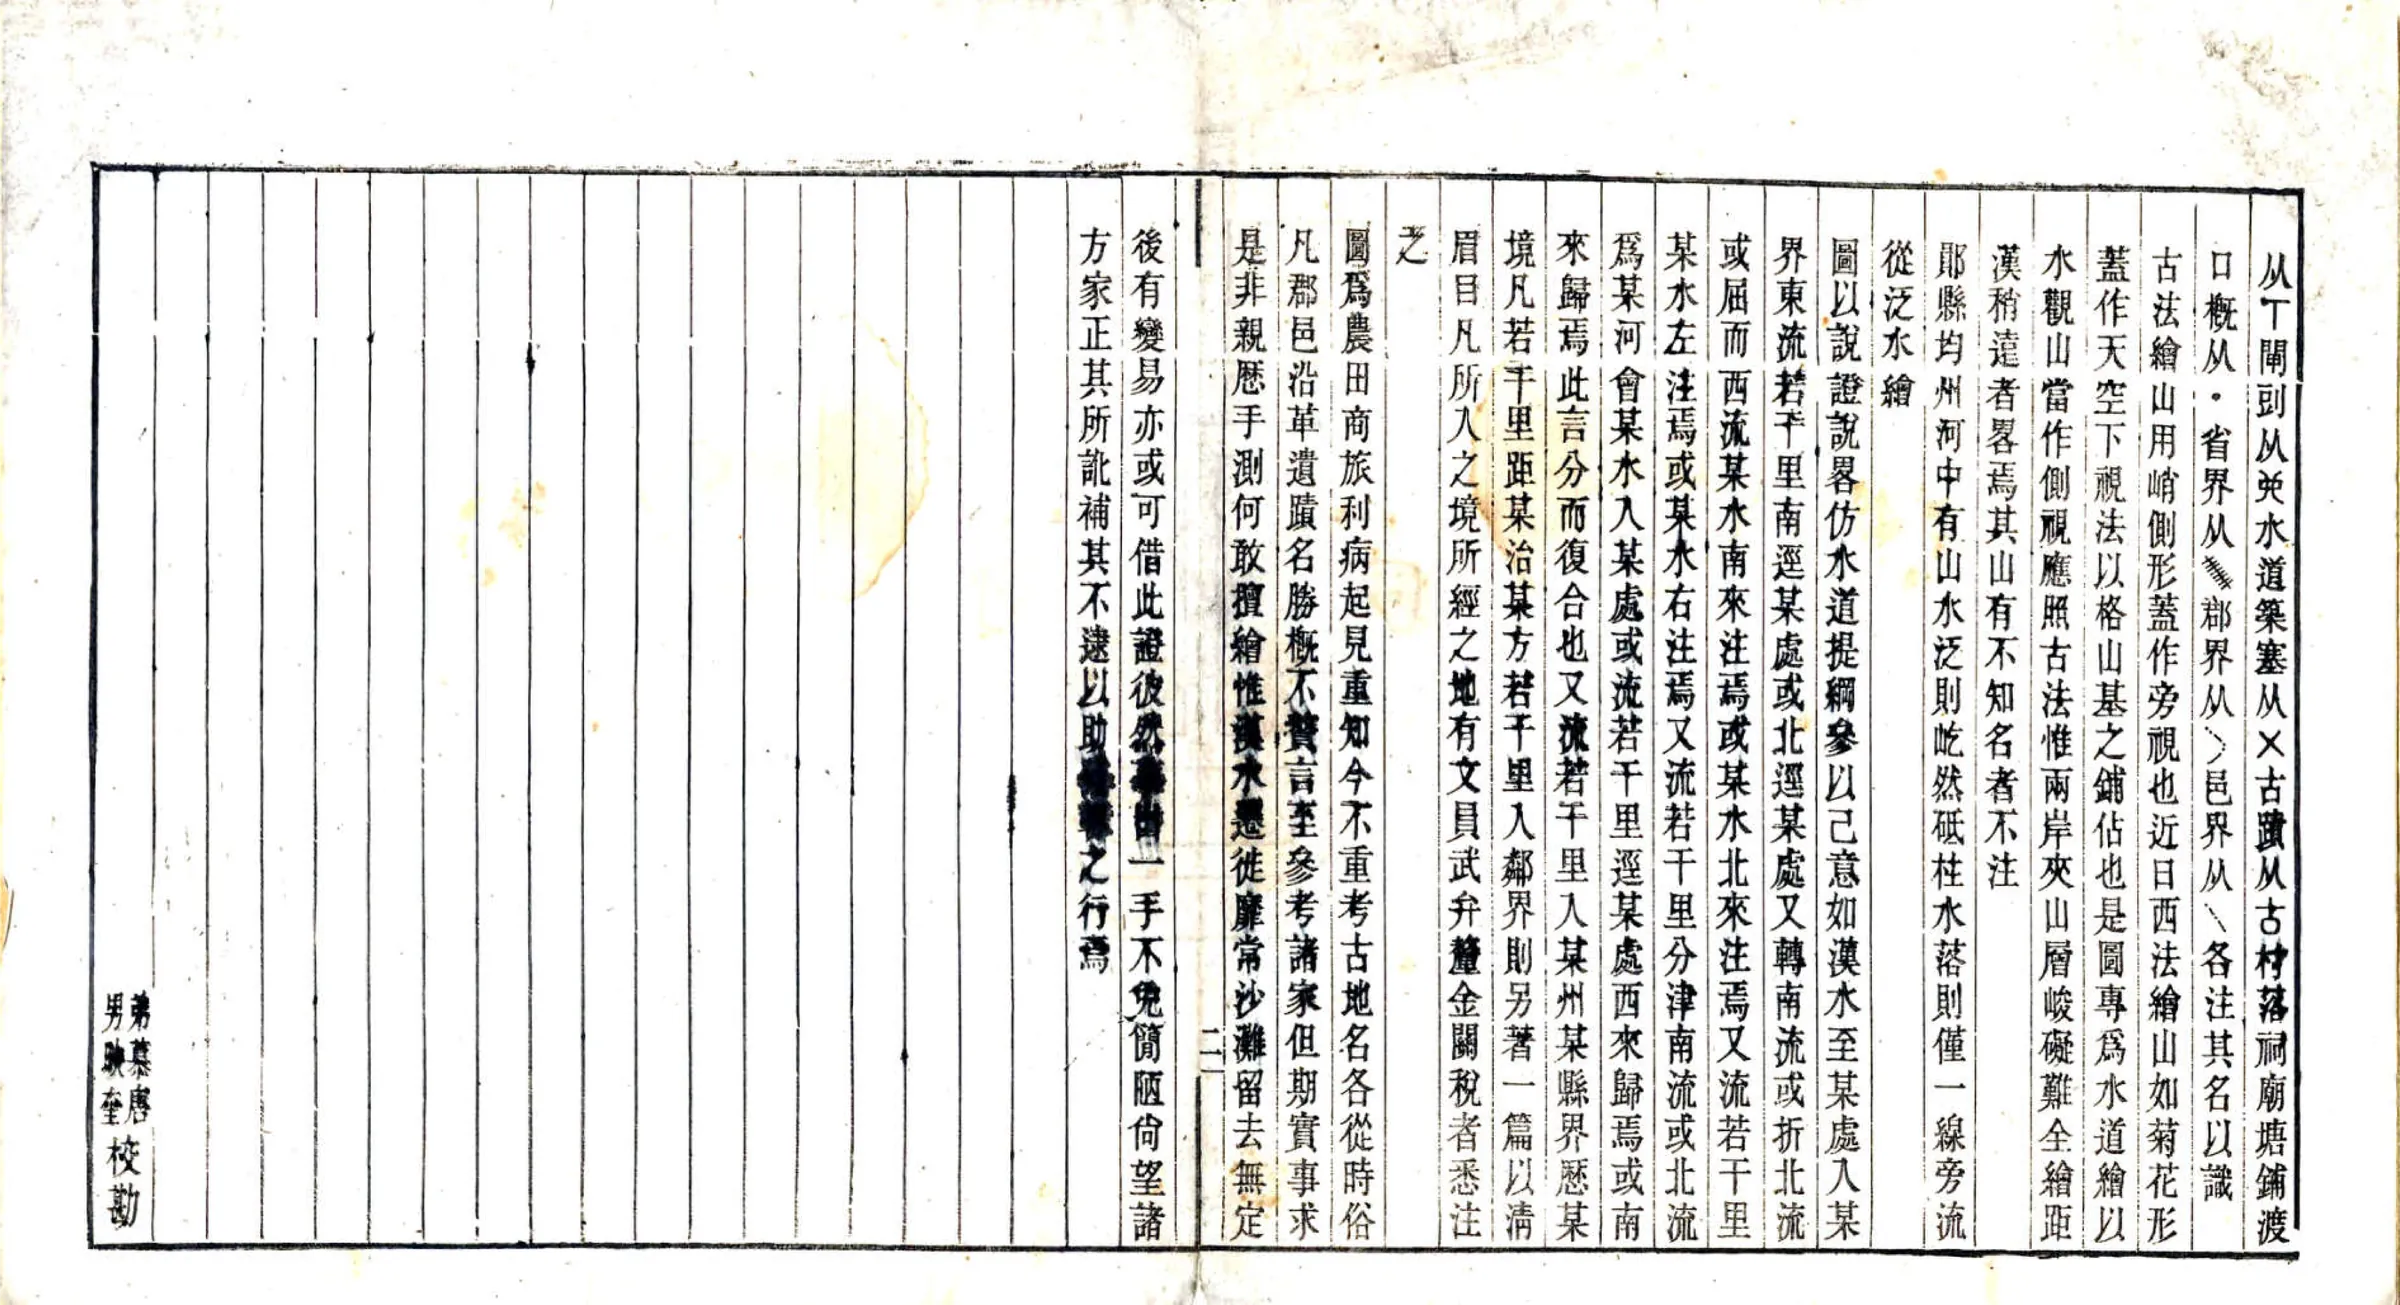 从丅閘剅从水道築塞从㐅古蹟从古村落祠廟塘鋪渡
口概从·省界从郡界从邑界从各注其名以識
古法繪山用峭側形蓋作旁視也近日西法繪山如菊花形
蓋作天空下視法以格山基之鋪佔也是圖專爲水道繪以
水觀山當作側視應照古法惟兩岸夾山層峻礙難全繪距
漢稍遠者畧焉其山有不知名者不注
鄖縣均州河中有山水泛則屹然砥柱水落則僅一線旁流
從泛水繪
圖以說證說畧仿水道提綱參以己意如漢水至某處入某
界東流若干里南逕某處或北逕某處又轉南流或折北流
或屈而西流某水南來注焉或某水北來注焉又流若干里
某水左注焉或某水右注焉又流若干里分津南流或北流
爲某河會某水入某處或流若干里逕某處西來歸焉或南
來歸焉此言分而復合也又流若干里入某州某縣界歷某
境凡若干里距某治某方若干里入鄰界則另著一篇以清
眉目凡所入之境所經之地有文員武弁釐金關稅者悉注
之
圖爲農田商旅利病起見重知今不重考古地名各從時俗
凡郡邑沿革遺蹟名勝概不贅言至參考諸家但期實事求
是非親歷手測何敢擅繪惟漢水遷徙靡常沙灘留去無定
二
後有變易亦或可借此證彼然事由一手不免簡陋尙望諸
方家正其所訛補其不逮以助之行焉
弟慕唐
男映奎
校勘